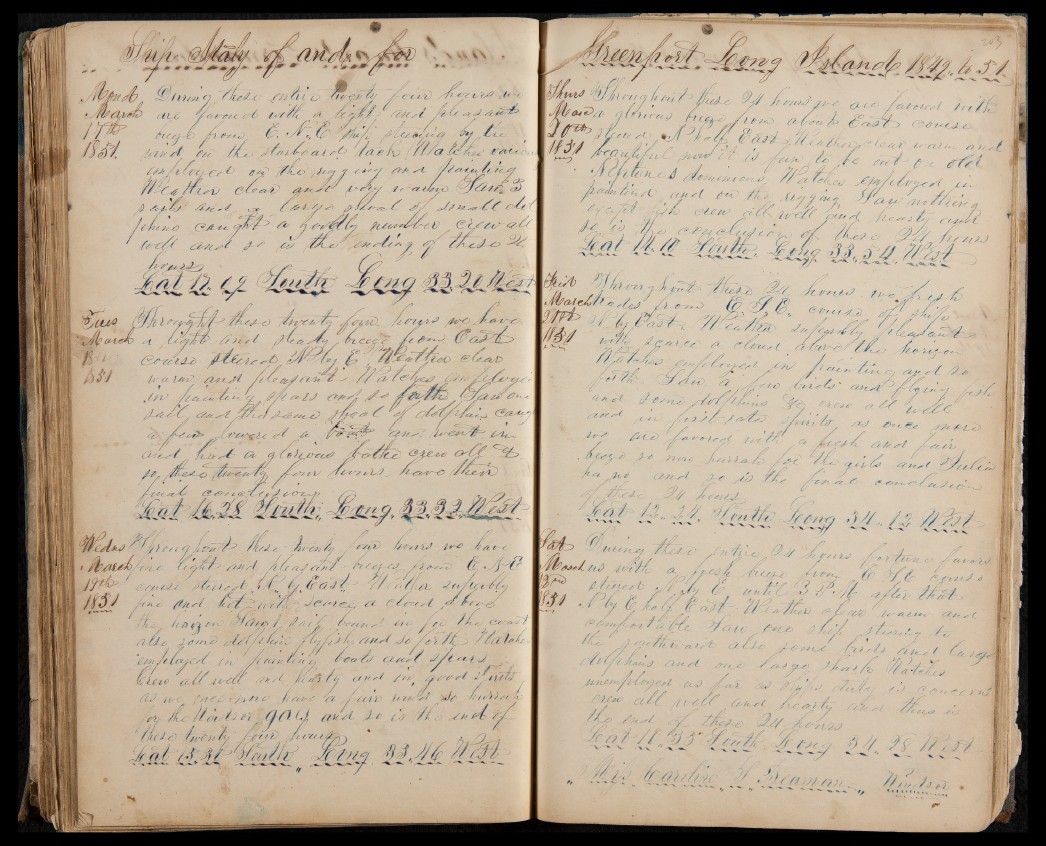 Ship Italy of and for
Mond During these entire twenty four hours we
March are favoured with a light and pleasant
17th from E. N. E ship steering by the
1851. wind on the starboard tack Watches
employed on the rigging and painting
Weather clear and very warm Saw 3
sails and a large shoal of small dol
phins caught a goodly number crew all
well and so is the ending of these 24
hours
Lat 17.09 South Long 33.20 West
Tues Throught these twenty four hours we have
March a light and steady breeze from East
18 course steered N by E Weather clear
1851 warm and pleasant Watches employed
in painting spars and so forth Saw one
sail and the same shoal of dolphin
a few lowered a and went in
and had a glorious bathe crew all
so these twenty four hours have their
final conclusion
Lat 16.28 South, Long, 33.32 West
Wedns Throughout these twenty four hours we have
March fine light and pleasant breezes from E. N E
19th course steered N by East Weather superbly
1851 fine and hot with scarce a cloud above
the sail bound in for the coast
also some dolphin flyfish and so forth Watches
employed in painting boats and spars
Crew all well and hearty and in good
as we once more have a fair wind so hurrah
for the Windsor gals and so is the end of
these twenty four hours
Lat 15.37 South, Long 33.46 West
203
Greenport Long Island 1849 to 51
Thurs Throughout these 24 hours we are favored with
March a glorious breeze from about East course
20th steered N half East Weather clear warm and
1851 beautiful now it is fun to be out on old
Neptunes dominions Watches employed in
painting and on the rigging Saw nothing
except fish crew all well and hearty and
so is the conclusion of these 24 hours
Lat 14.10 South, Long 33.54 West
Frid Throughout these 24 hours we fresh
March trades from E. S. E. course of ship
N by East Weather superbly pleasant
1851 with scarce a cloud above the horizon
Watches employed in painting and so
forth Saw a few birds and flying fish
and some dolphins &c crew all well
and in first rate spirits as once more
we are favored with a fresh and fair
breeze so now hurrah for the girls and
and so is the final conclusion
these 24 hours
Lat 12.24 South Long 34.12 West
Sat During these entire 24 hours fortune favors
March us with a fresh breeze from E S E course
steered N by E until 3 P. M after that
1851 N by E half East Weather clear warm and
comfortable Saw one ship steering to
the southward also some birds and large
dolphins and one large shark Watches
unemployed as far as ships duty is concerned
crew all well and hearty and thus is
the end of these 24 hours
Lat 11.33 South Long 34.28 West
" Miss Caroline S Beaman " Windsor